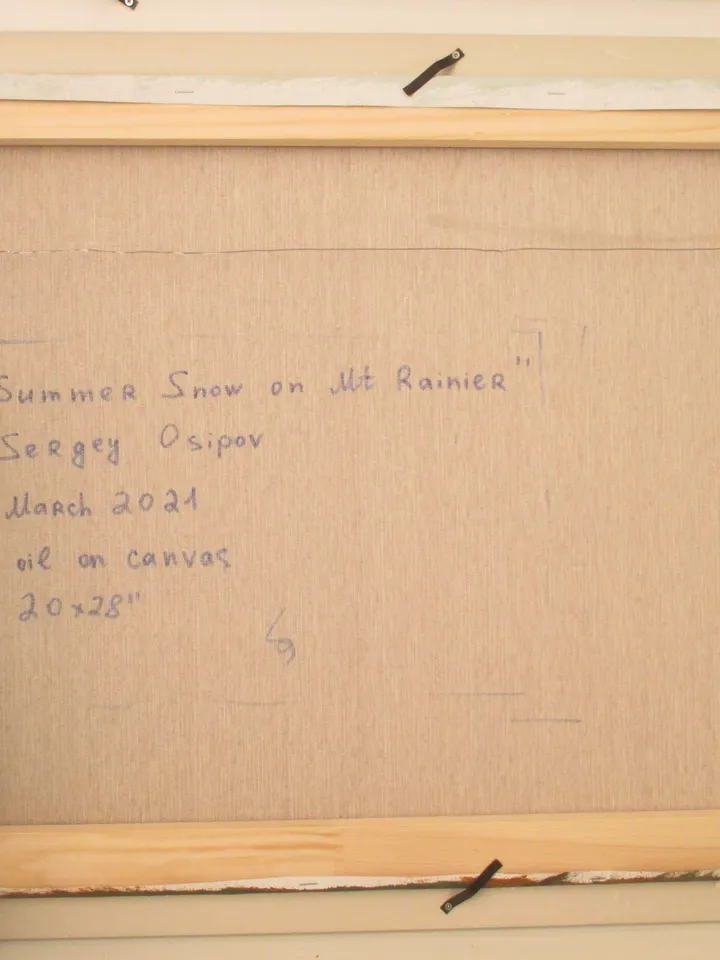 Summer Snow on Mt Rainier"
Sergey Osipov
March 2021
oil on canvas
20x28"